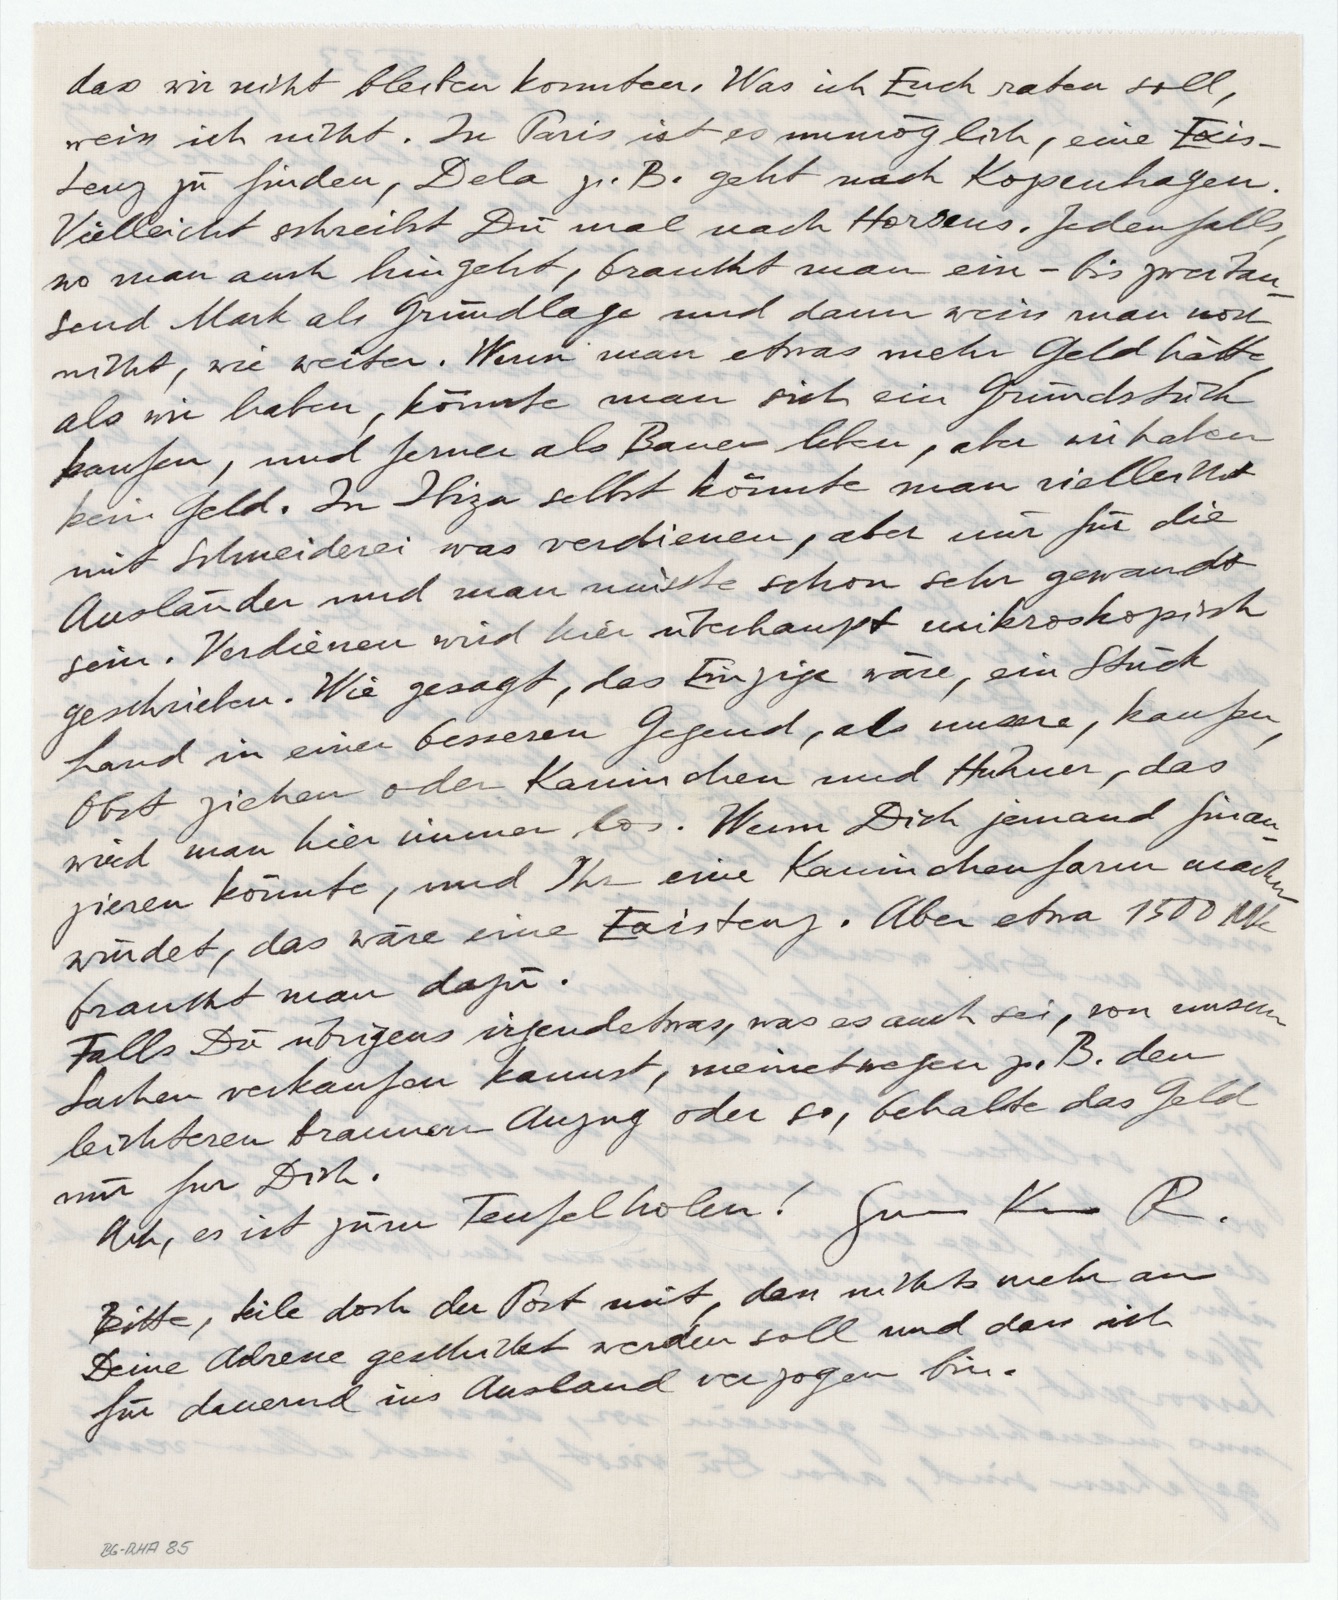 dass wir nicht bleiben konnten. Was ich Euch raten soll,
weiss ich nicht. In Paris ist es unmöglich, eine Exis-
tenz zu finden, Dela z. B. geht nach Kopenhagen.
Vielleicht schreibt Du mal nach Horsens. Jedenfalls,
wo man auch hingeht, braucht man ein- bis zweitau-
send Mark als Grundlage und dann weiss man noch
nicht, wie weiter. Wenn man etwas mehr Geld hätte,
als wir haben, könnte man sich ein Grundstück
kaufen, und ferner als Bauer leben, aber wir haben
kein Geld. In Ibiza selbst könnte man vielleicht
mit Schneiderei was verdienen, aber nur für die
Ausländer und man müsste schon sehr gewandt
sein. Verdienen wird hier überhaupt mikroskopisch
geschrieben. Wie gesagt, das Einzige wäre, ein Stück
Land in einer besseren Gegend, als unsere, kaufen,
Obst ziehen oder Kaninchen und Hühner, das
wird man hier immer los. Wenn Dich jemand finan-
zieren könnte, und Ihr eine Kaninchenfarm machen
würdet, das wäre eine Existenz. Aber etwa 1500 Mk
braucht man dazu.
Falls Du übrigens irgendetwas, was es auch sei, von unsern
Sachen verkaufen kannst, meinetwegen z. B. den
leichteren braunen Anzug oder so, behalte das Geld
nur für Dich.
Ach, es ist zum Teufelholen! Gruss Kuss R.
Bitte, teile doch der Post mit, dass nichts mehr an
Deine Adresse geschickt werden soll und dass ich
für dauernd ins Ausland verzogen bin.
BG-RHA 85